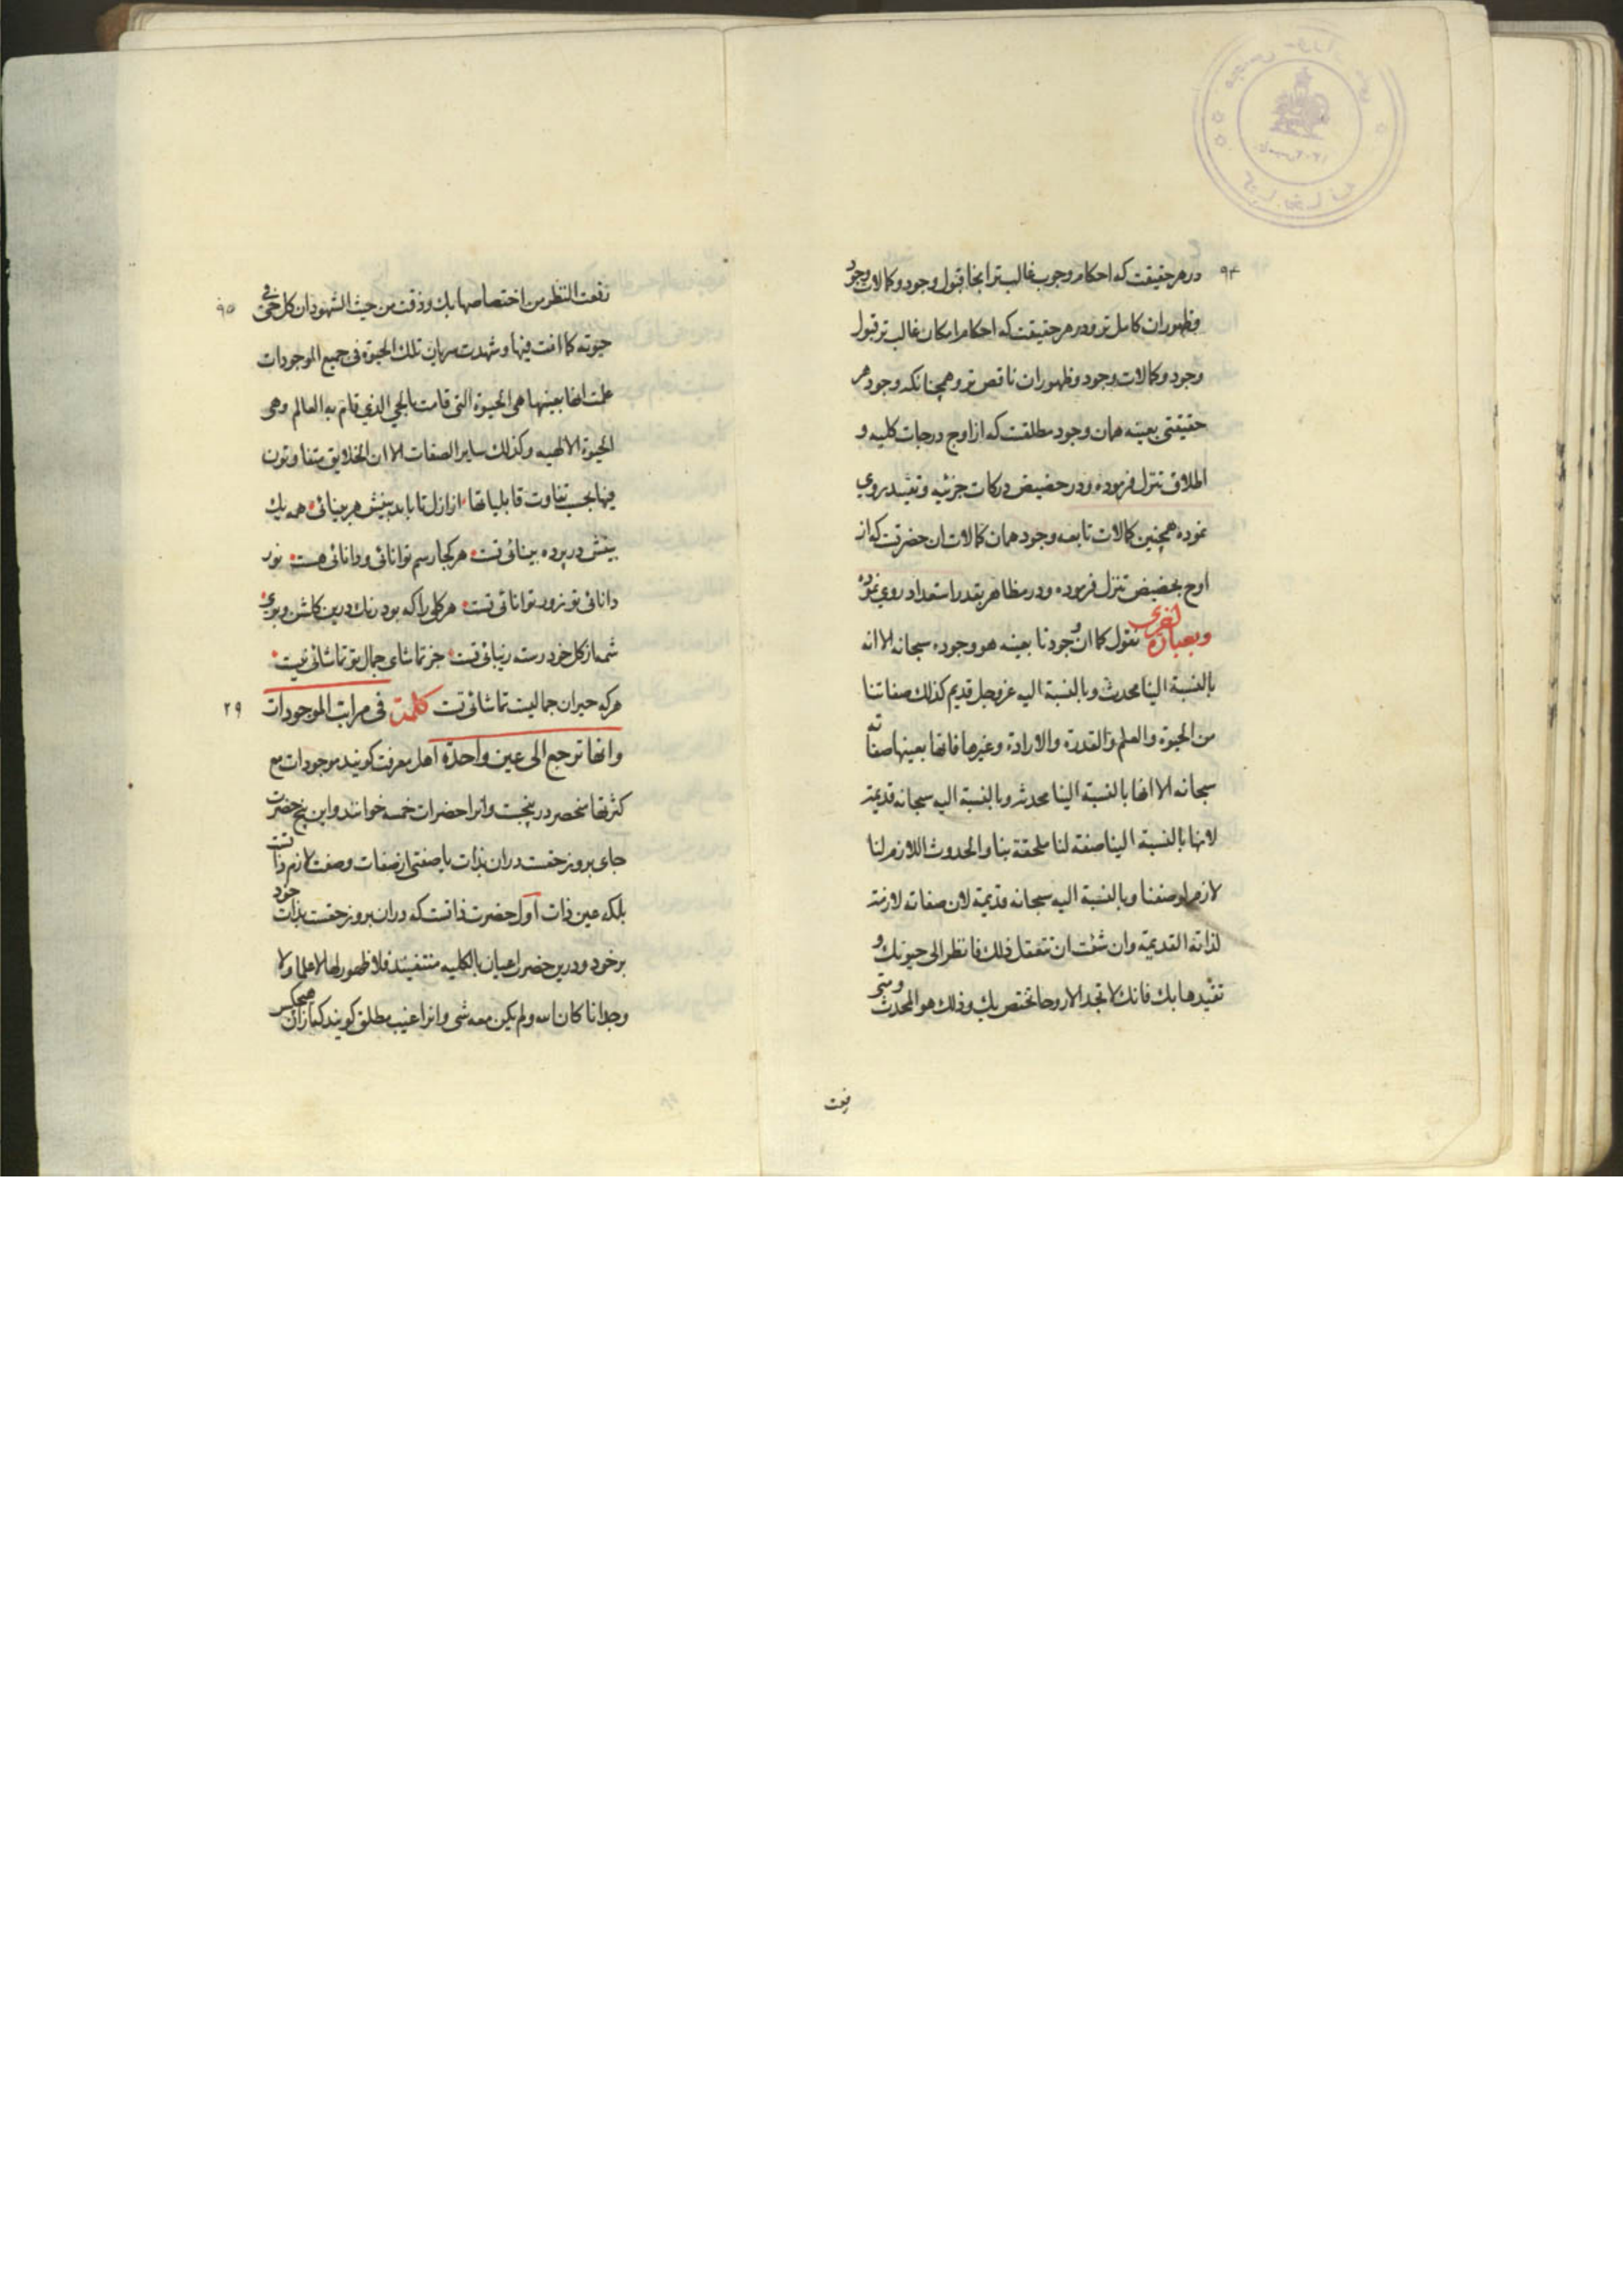 ۹۴
درهر حقیقت که احکام وجوب غالبتر انجا قبول وجود و کمالات وجود
وظهوران کامل تر ودرهر حقیقت که احکام امکان غالب تر قبول
وجود وکمالات وجود وظهوران ناقص تر وهمچنانکه وجود هر
حقیقتی بعینه همان وجود مطلقست که از اوج درجات کلیه و
اطلاق تنزل فرموده ودر حضیض درکات جزئیه وتقیید روی
نموده همچنین کمالات تابعه وجود همان کمالات ان حضرت که از
اوج بحضیض تنزل فرموده ودر مظاهر بقدر استعداد روی نموده
وبعبارة اخری نقول کما ان وجودنا بعینه هو وجوده سبحانه الا انه
بالنسبة الینا محدث وبالنسبة الیه عز وجل قدیم کذلك صفاتنا
من الحیوة والعلم والقدرة والارادة وغیرها فانها بعینها صفاته
سبحانه الا انها بالنسبة الینا محدثة وبالنسبة الیه سبحانه قدیمة
لانها بالنسبة الینا صفة لنا ملحقة بنا والحدوث اللازم لنا
لازم لوصفنا وبالنسبة الیه سبحانه قدیمة لان صفاته لازمة
لذاته القدیمة وان شئت ان تتعقل ذلك فانظر الی حیوتك و
تقییدها بك فانك لا تجد الا روحا تختص بك وذلك هو المحدث ومتی
رفعت
۹۵
رفعت النظر من اختصاصها بك وذقت من حیث الشهود ان کل حی فی
حیوته کما انت فیها وشهدت سریان تلك الحیوة فی جمیع الموجودات
علمت انها بعینها هی الحیوة التی قامت بالحی الذی قام به العالم وهی
الحیوة الالهیه وکذلك سایر الصفات الا ان الخلایق متفاوتون
فیها بحسب تفاوت قابلیاتها از ازل تا بابد بینش هر بینائی همه یك
بینش در پرده بینائی تست هر کجا رسم توانائی ودانائی هست نور
دانائی تو زور توانائی تست هر کلی را که بود رنك درین کلشن وبوی
شمه از کل خود رسته زیبائی تست جز تماشای جمال تو تماشائی نیست
هرکه حیران جمالیست تماشائی تست کلمة فی مراتب الموجودات
۲۹
وانها ترجع الی عین واحدة اهل معرفت کویند موجودات مع
کثرتها منحصر در پنجست وانرا حضرات خمسه خوانند واین پنج حضرت
جای بروز حقست دران بذات یا صفتی از صفات وصفت لازم ذاتست
بلکه عین ذات اول حضرت ذاتست که دران بروز حقست بذات خود
برخود ودرین حضرت اعیان بالکلیه منتفیند فلا ظهور لها لا علما ولا
وجدانا کان الله ولم یکن معه شی وانرا غیب مطلق کویند که از ان هیچکس